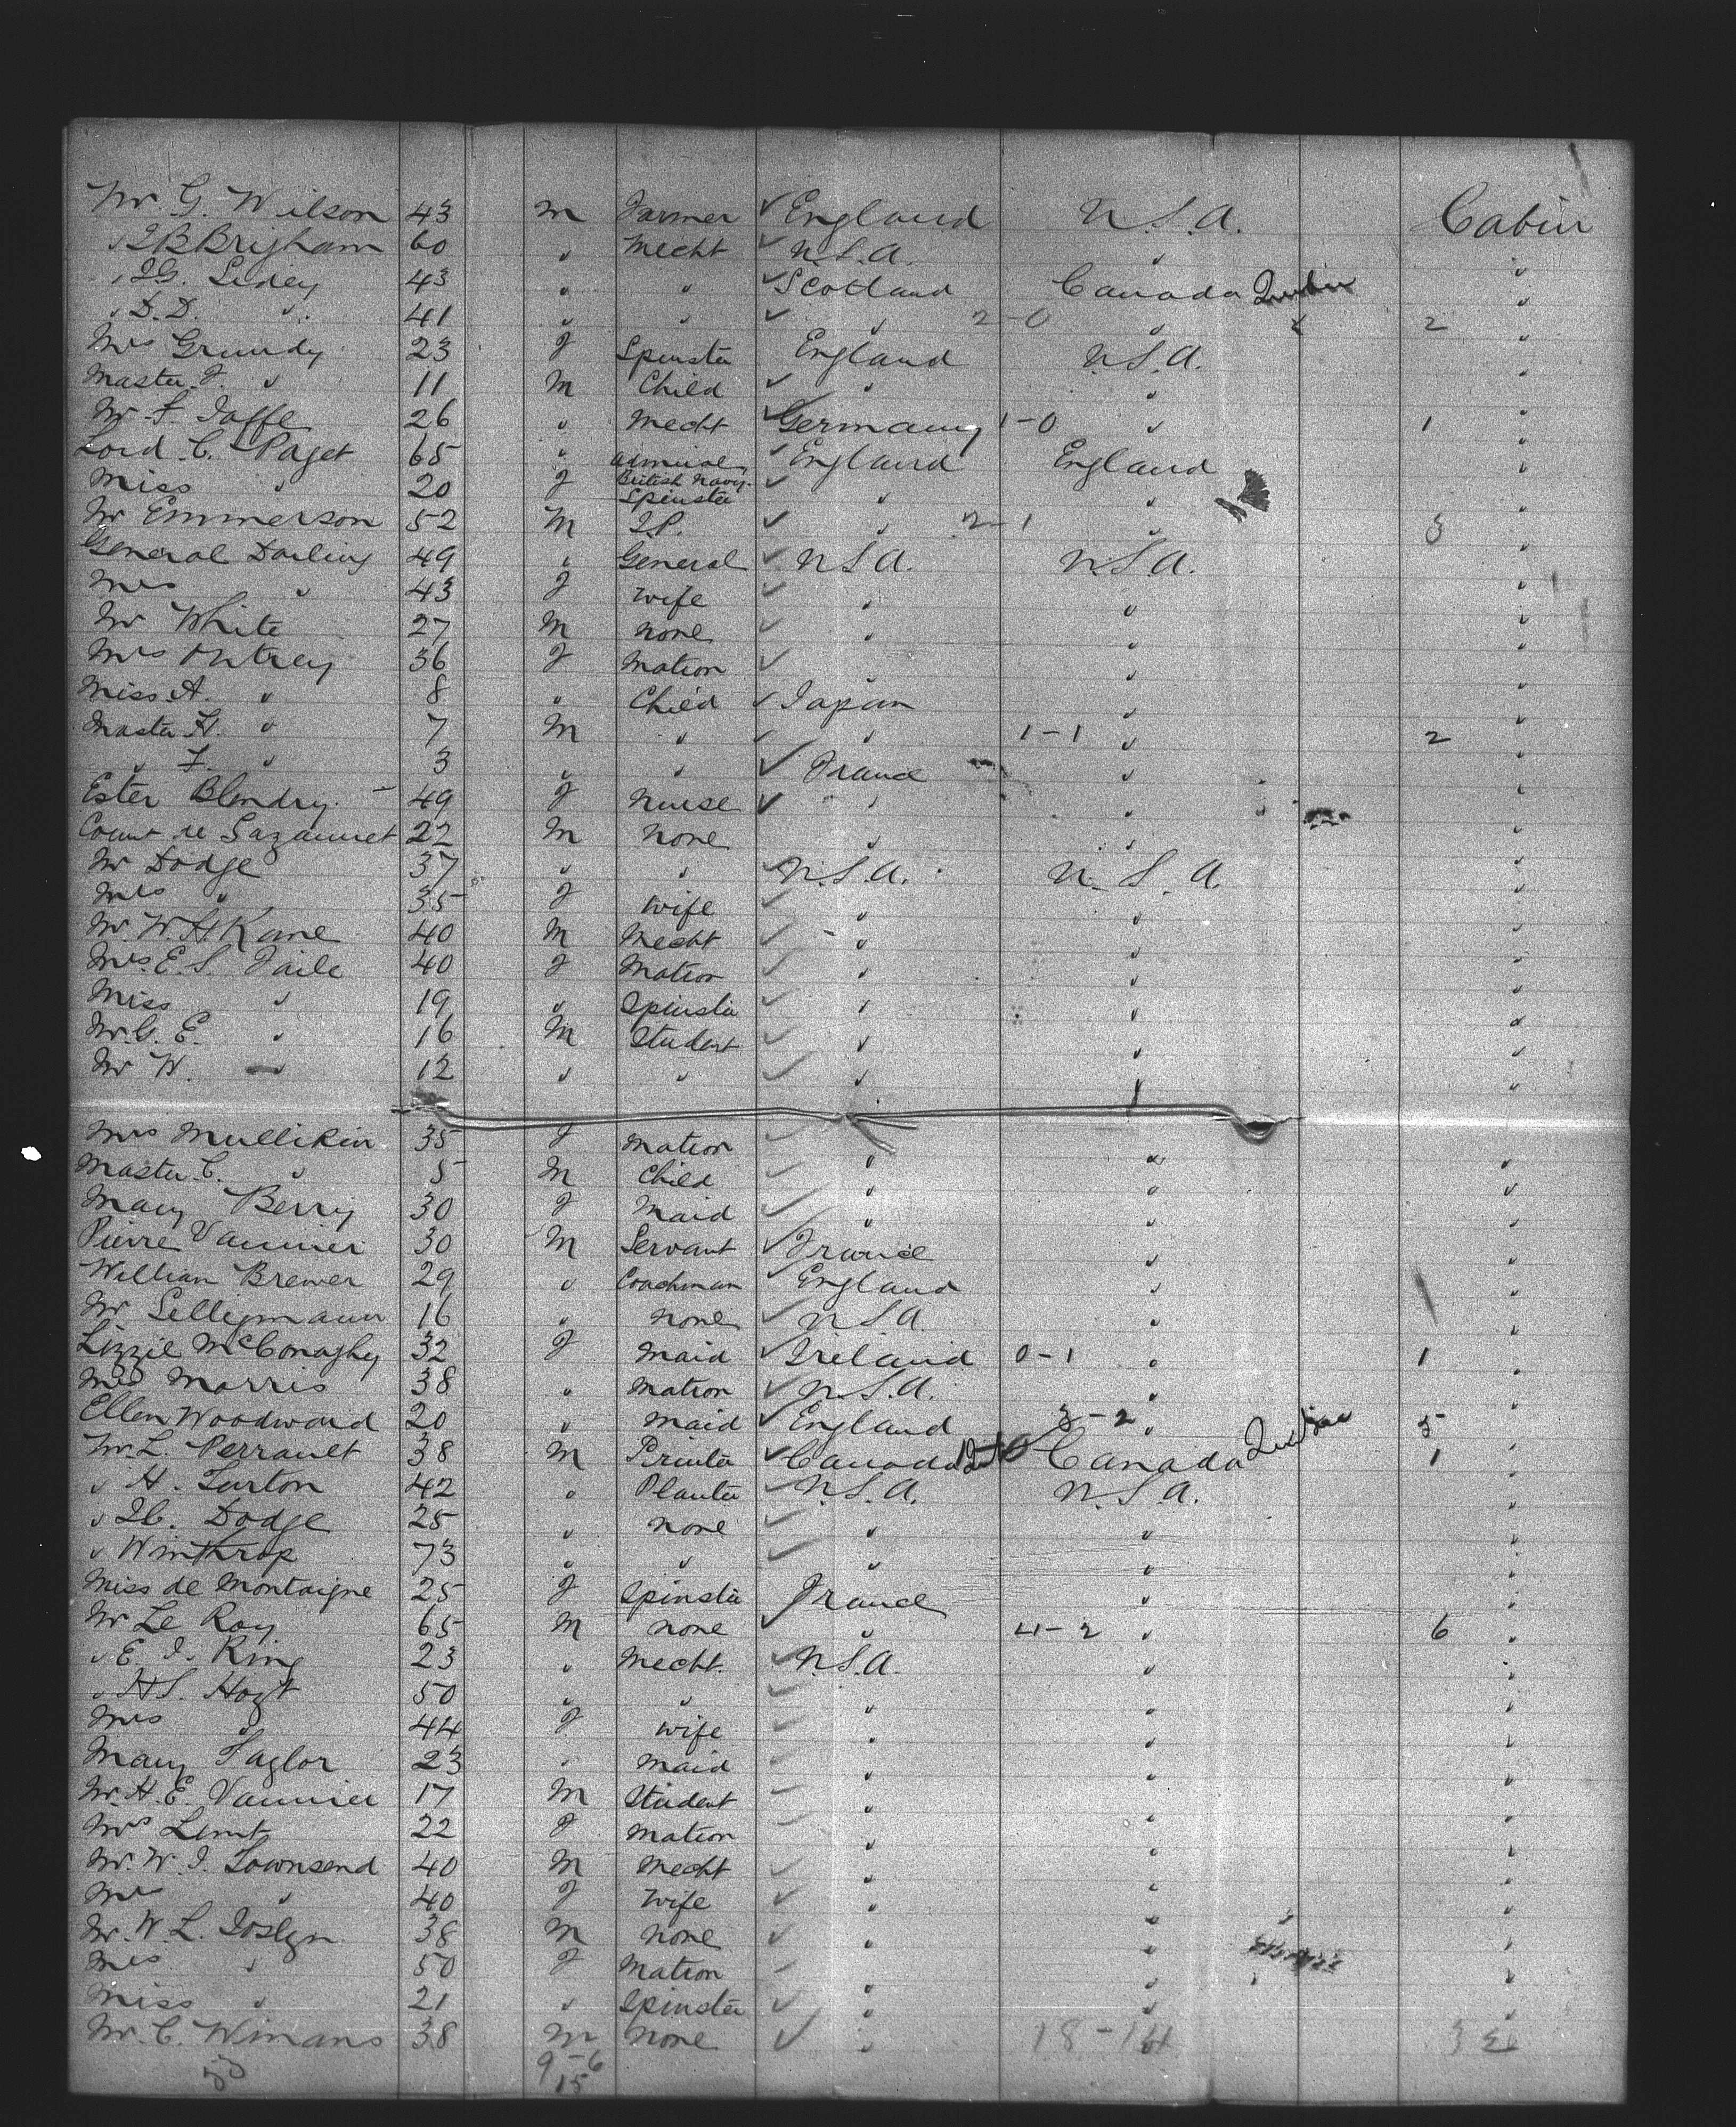 Mr G. Wilson 43 m Farmer ✓ England U.S.A. Cabin
" J B Brigham 60 " Mecht ✓ U.S.A. " "
" J G. 43 " " ✓ Scotland Canada "
" D.D. " 41 " " ✓ " 2-0 " 2 "
Mrs Grundy 23 f Spinster England U.S.A. "
Master J. " 11 M Child ✓ " " "
Mr F. Jaffe 26 " Mecht ✓ Germany 1-0 " 1 "
Lord C. Paget 65 " Admiral British Navy ✓ England England "
Miss " 20 f Spinster ✓ " " "
Mr Emmerson 52 M J.P. ✓ " 2-1 " 3 "
General Darling 49 " General ✓ U.S.A. U.S.A. "
Mrs " 43 f Wife ✓ " " "
Mr White 27 M none ✓ " " "
Mrs 36 f Matron ✓ " " "
Miss A. " 8 " Child ✓ Japan " "
Master H. " 7 M " ✓ " 1-1 " 2 "
" F. " 3 " " ✓ France " "
Ester Blondry 49 f Nurse ✓ " " "
Count de 22 M none " " "
Mr Dodge 37 " " ✓ U.S.A. U.S.A. "
Mrs " 35 f Wife ✓ " " "
Mr. W. H. Kane 40 M Mecht ✓ " " "
Mrs. E. S. Jaile 40 f Matron ✓ " " "
Miss " 19 " Spinster ✓ " " "
Mr. G. E. " 16 M Student ✓ " " "
Mr W. " 12 " " ✓ " " "
Mrs Mullikin 35 f Matron ✓ " " "
Master C. " 5 M Child ✓ " " "
Mary Berry 30 f Maid ✓ " " "
Pierre Vannier 30 M Servant ✓ France " "
William Brewer 29 " Coachman ✓ England " "
Mr Selligmann 16 " none ✓ U.S.A. " "
Lizzie McConaghy 32 f Maid ✓ Ireland 0-1 " 1 "
Mrs Morris 38 " Matron ✓ U.S.A. " "
Ellen Woodward 20 " Maid ✓ England 3-2 " 5 "
Mr. L. Perrault 38 M Printer ✓ Canada Canada 1 "
" H. Turton 42 " Planter ✓ U.S.A. U.S.A. "
" Dodge 25 " none ✓ " " "
" Winthrop 73 " " ✓ " " "
Miss de Montaigne 25 f Spinster France " "
Mr Le Roy 65 M none ✓ " 4-2 " 6 "
" E. J. King 23 " Mecht. ✓ U.S.A. " "
" H S. Hoyt 50 " " ✓ " " "
Mrs " 44 f Wife ✓ " " "
Mary Taylor 23 " Maid ✓ " " "
Mr. H. E. Vannier 17 M Student ✓ " " "
Mrs Lent 22 f Matron " " "
Mr. W. J. Townsend 40 M Mecht ✓ " " "
Mrs " 40 f Wife ✓ " " "
Mr. W. L. Joslyn 38 M none ✓ " " "
Mrs " 50 f Matron ✓ " " "
Miss " 21 " Spinster ✓ " " "
Mr. C. Winans 38 M none ✓ "
9-6
15